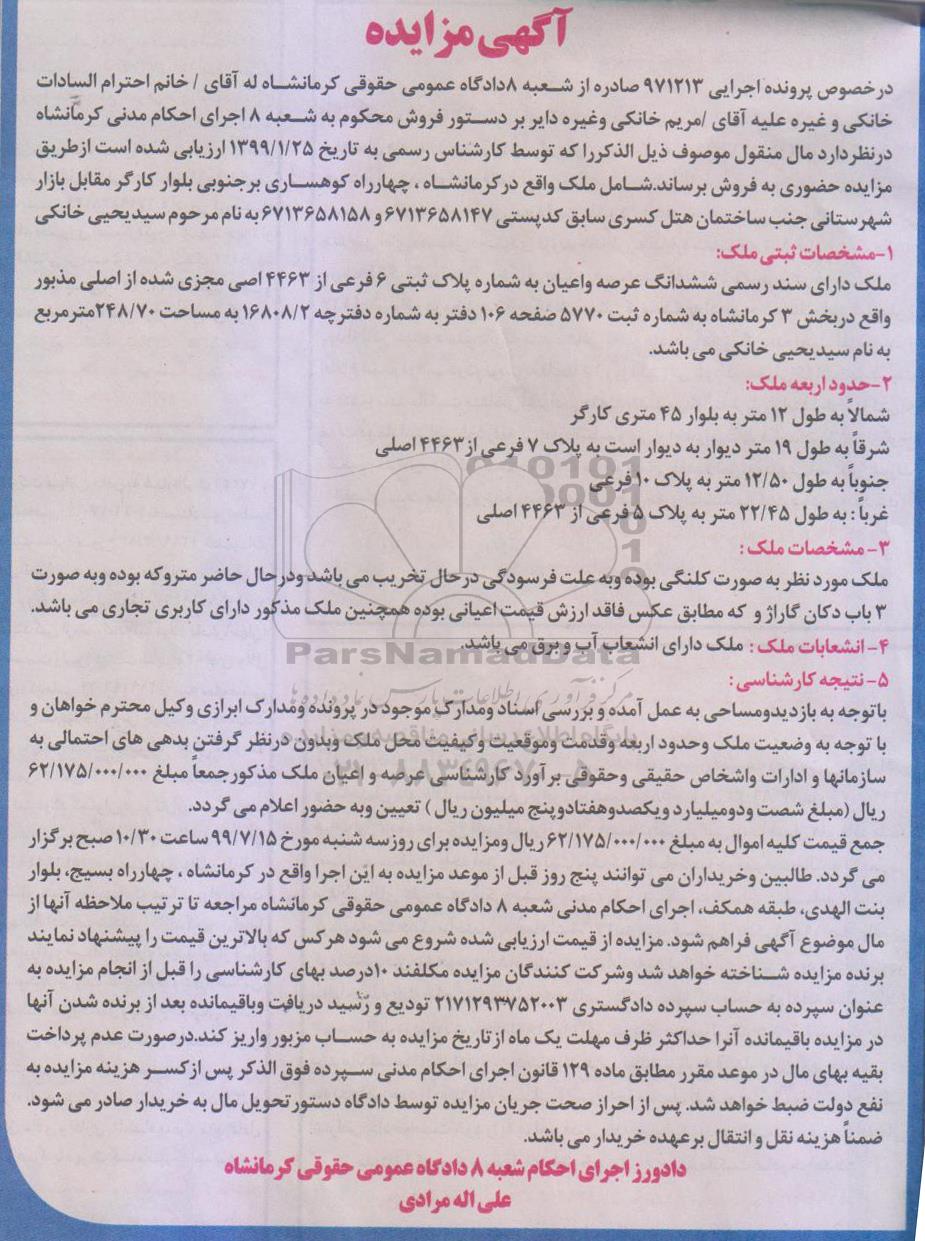 آگهی مزایده
درخصوص پرونده اجرایی ۹۷۱۲۱۳ صادره از شعبه ۸دادگاه عمومی حقوقی کرمانشاه له آقای / خانم احترام السادات
خانکی و غیره علیه آقای /مریم خانکی وغیره دایر بر دستور فروش محکوم به شعبه ۸ اجرای احکام مدنی کرمانشاه
درنظردارد مال منقول موصوف ذیل الذکررا که توسط کارشناس رسمی به تاریخ ۱۳۹۹/۱/۲۵ ارزیابی شده است ازطریق
مزایده حضوری به فروش برساند.شامل ملک واقع درکرمانشاه ، چهارراه کوهساری برجنوبی بلوار کارگر مقابل بازار
شهرستانی جنب ساختمان هتل کسری سابق کدپستی ۶۷۱۳۶۵۸۱۴۷و ۶۷۱۳۶۵۸۱۵۸به نام مرحوم سیدیحیی خانکی
۱-مشخصات ثبتی ملک:
ملک دارای سند رسمی ششدانگ عرصه واعیان به شماره پلاک ثبتی ۶ فرعی از ۴۴۶۳ اصی مجزی شده از اصلی مذبور
واقع دربخش ۳ کرمانشاه به شماره ثبت ۵۷۷۰ صفحه ۱۰۶ دفتر به شماره دفترچه ۱۶۸۰۸/۲ به مساحت ۲۴۸/۷۰مترمربع
به نام سیدیحیی خانکی می باشد.
۲-حدود اربعه ملک:
شمالاً به طول ۱۲ متر به بلوار ۴۵ متری کارگر
شرقاً به طول ۱۹ متر دیوار به دیوار است به پلاک ۷ فرعی از۴۴۶۳ اصلی
جنوباً به طول ۱۲/۵۰ متر به پلاک ۱۰ فرعی
غرباً : به طول ۲۲/۴۵ متر به پلاک ۵ فرعی از ۴۴۶۳ اصلی
۳- مشخصات ملک :
ملک مورد نظر به صورت کلنگی بوده وبه علت فرسودگی درحال تخریب می باشد ودرحال حاضر متروکه بوده وبه صورت
۳ باب دکان گاراژ و که مطابق عکس فاقد ارزش قیمت اعیانی بوده همچنین ملک مذکور دارای کاربری تجاری می باشد.
۴- انشعابات ملک : ملک دارای انشعاب آب و برق می باشد.
ParsNamadData
۵- نتیجه کارشناسی :
مرکز فرآوری اطلاعات پارس نماد داده ها
باتوجه به بازدیدومساحی به عمل آمده و بررسی اسناد ومدارک موجود در پرونده ومدارک ابرازی وکیل محترم خواهان و
با توجه به وضعیت ملک وحدود اربعه وقدمت وموقعیت وکیفیت محل ملک وبدون درنظر گرفتن بدهی های احتمالی به
سازمانها و ادارات واشخاص حقیقی وحقوقی برآورد کارشناسی عرصه و اعیان ملک مذکورجمعاً مبلغ ۶۲/۱۷۵/۰۰۰/۰۰۰
ریال (مبلغ شصت ودومیلیارد ویکصدوهفتادوپنج میلیون ریال ) تعیین وبه حضور اعلام می گردد.
جمع قیمت کلیه اموال به مبلغ ۶۲/۱۷۵/۰۰۰/۰۰۰ریال ومزایده برای روزسه شنبه مورخ ۹۹/۷/۱۵ ساعت ۱۰/۳۰ صبح برگزار
می گردد. طالبین وخریداران می توانند پنج روز قبل از موعد مزایده به این اجرا واقع در کرمانشاه ، چهارراه بسیج، بلوار
بنت الهدی، طبقه همکف، اجرای احکام مدنی شعبه ۸ دادگاه عمومی حقوقی کرمانشاه مراجعه تا ترتیب ملاحظه آنها از
مال موضوع آگهی فراهم شود. مزایده از قیمت ارزیابی شده شروع می شود هرکس که بالاترین قیمت را پیشنهاد نمایند
برنده مزایده شناخته خواهد شد وشرکت کنندگان مزایده مکلفند ۱۰درصد بهای کارشناسی را قبل از انجام مزایده به
عنوان سپرده به حساب سپرده دادگستری ۲۱۷۱۲۹۳۷۵۲۰۰۳ تودیع و رسید دریافت وباقیمانده بعد از برنده شدن آنها
در مزایده باقیمانده آنرا حداکثر ظرف مهلت یک ماه ازتاریخ مزایده به حساب مزبور واریز کند.درصورت عدم پرداخت
بقیه بهای مال در موعد مقرر مطابق ماده ۱۲۹ قانون اجرای احکام مدنی سپرده فوق الذکر پس ازکسر هزینه مزایده به
نفع دولت ضبط خواهد شد. پس از احراز صحت جریان مزایده توسط دادگاه دستورتحویل مال به خریدار صادر می شود.
ضمناً هزینه نقل و انتقال برعهده خریدار می باشد.
دادورز اجرای احکام شعبه ۸ دادگاه عمومی حقوقی کرمانشاه
علی اله مرادی